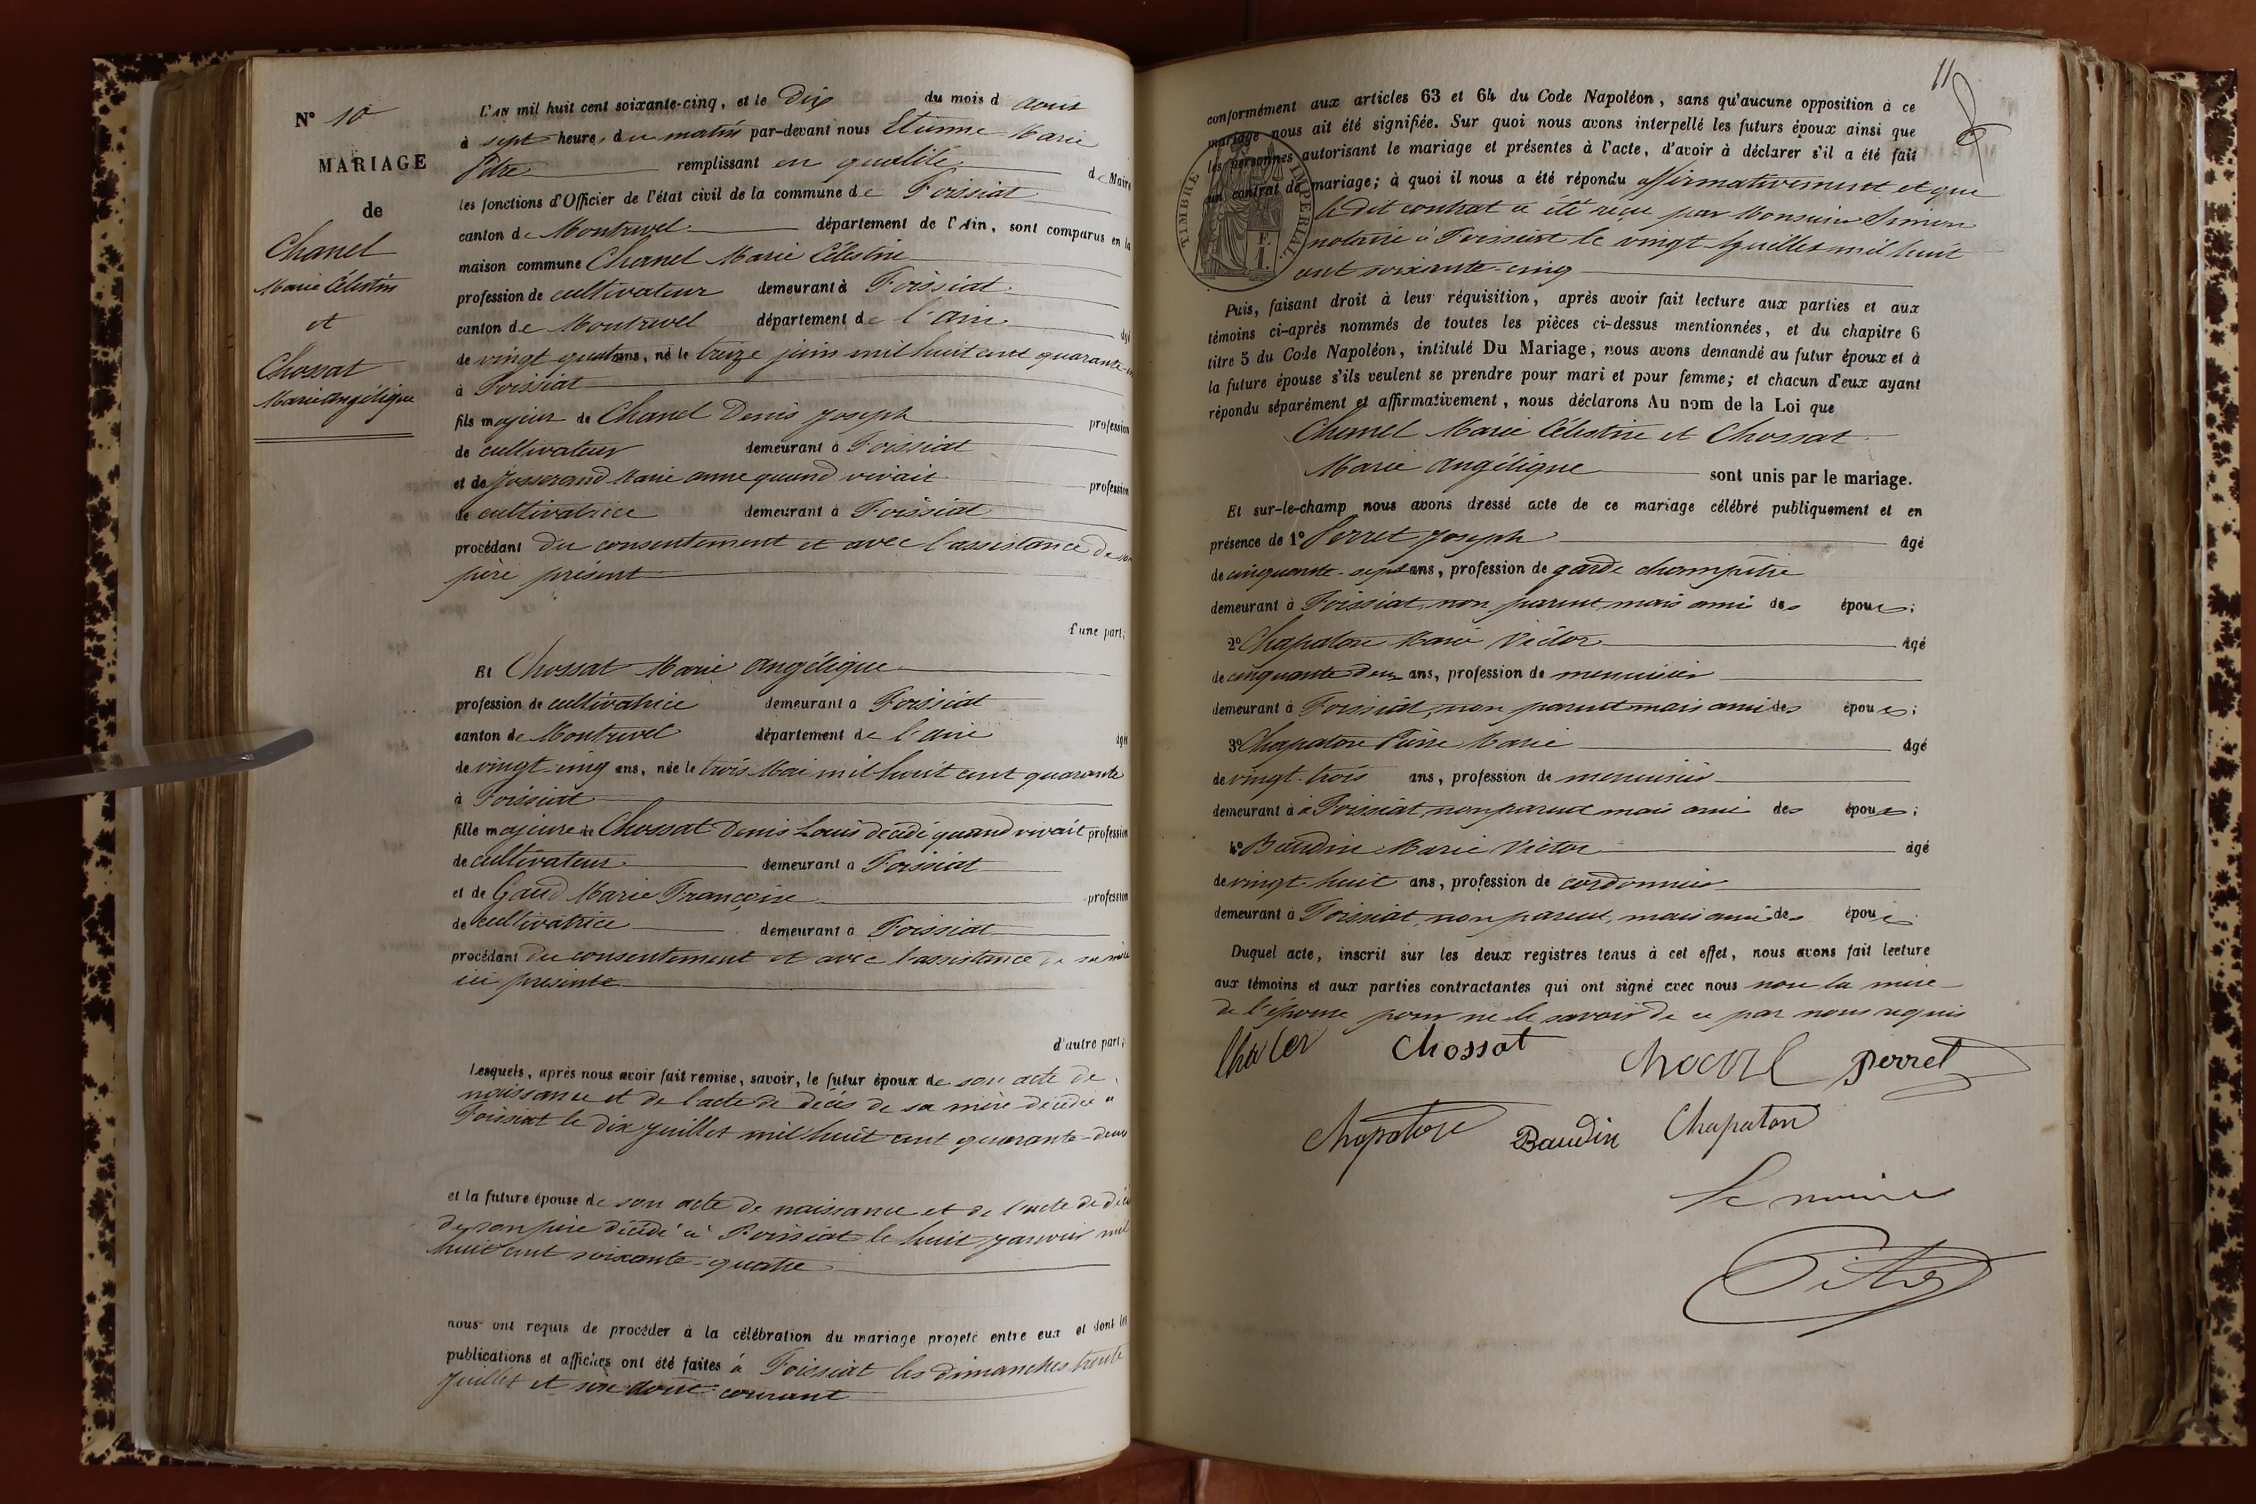 N° 10
MARIAGE
de
Chanel
Marie Célestin
et
Chossat
Marie angélique
L'AN mil huit cent soixante-cinq, et le Dix du mois d aout
à sept heures du matin par-devant nous Etienne Marie
Pitre remplissant en qualité de Maire
les fonctions d'Officier de l'état civil de la commune de Foissiat
canton de Montrevel département de l'Ain, sont comparus en la
maison commune Chanel Marie Célestin
profession de cultivateur demeurant à Foissiat
canton de Montrevel département de l'ain âgé
de vingt quatre ans, né le treize juin mil huit cent quarante-un
à Foissiat
fils majeur de Chanel Denis Joseph profession
de cultivateur demeurant à Foissiat
et de Josserand Marie anne quand vivait profession
de cultivatrice demeurant à Foissiat
procédant du consentement et avec l'assistance de son
père présent
d'une part;
Et Chossat Marie angélique
profession de cultivatrice demeurant à Foissiat
canton de Montrevel département de l'ain âgée
de vingt-cinq ans, née le trois Mai mil huit cent quarante
à Foissiat
fille majeure de Chossat Denis Louis décédé quand vivait profession
de cultivateur demeurant à Foissiat
et de Gaud Marie Françoise profession
de cultivatrice demeurant à Foissiat
procédant du consentement et avec l'assistance de sa mère
ici présente
d'autre part;
Lesquels, après nous avoir fait remise, savoir, le futur époux de son acte de
naissance et de l'acte de décès de sa mère décédée à
Foissiat le dix Juillet mil huit cent quarante-deux
et la future épouse de son acte de naissance et de l'acte de décès
de son père décédé à Foissiat le huit janvier mil
huit cent soixante-quatre
nous ont requis de procéder à la célébration du mariage projeté entre eux et dont les
publications et affiches ont été faites à Foissiat les dimanches trente
Juillet et six aout courant
11
conformément aux articles 63 et 64 du Code Napoléon, sans qu'aucune opposition à ce
mariage nous ait été signifiée. Sur quoi nous avons interpellé les futurs époux ainsi que
les personnes autorisant le mariage et présentes à l'acte, d'avoir à déclarer s'il a été fait
un contrat de mariage; à quoi il nous a été répondu affirmativement et que
le dit contrat a été reçu par Monsieur Simon
notaire à Foissiat le vingt Juillet mil huit
cent soixante-cinq
TIMBRE IMPERIAL
Puis, faisant droit à leur réquisition, après avoir fait lecture aux parties et aux
témoins ci-après nommés de toutes les pièces ci-dessus mentionnées, et du chapitre 6
titre 5 du Code Napoléon, intitulé Du Mariage, nous avons demandé au futur époux et à
la future épouse s'ils veulent se prendre pour mari et pour femme; et chacun d'eux ayant
répondu séparément et affirmativement, nous déclarons Au nom de la Loi que
Chanel Marie Célestin et Chossat
Marie angélique sont unis par le mariage.
Et sur-le-champ nous avons dressé acte de ce mariage célébré publiquement et en
présence de 1° Perret Joseph âgé
de cinquante-sept ans, profession de garde champêtre
demeurant à Foissiat, non parent mais ami des époux;
2° Chapaton Marie Victor âgé
de cinquante deux ans, profession de menuisier
demeurant à Foissiat, non parent mais ami des époux;
3° Chapaton Pierre Marie âgé
de vingt-trois ans, profession de menuisier
demeurant à à Foissiat, non parent mais ami des époux;
4° Baudin Marie Victor âgé
de vingt-huit ans, profession de cordonnier
demeurant à Foissiat, non parent, mais ami des époux
Duquel acte, inscrit sur les deux registres tenus à cet effet, nous avons fait lecture
aux témoins et aux parties contractantes qui ont signé avec nous non la mère
de l'épouse pour ne le savoir de ce par nous requis
Chossat Perret
Chapaton Baudin Chapaton
Le maire
Pitre